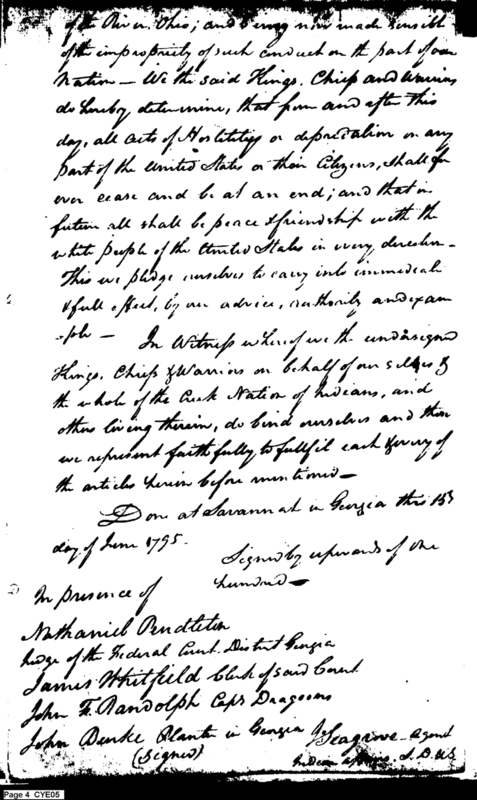 of the River Ohio; and being now made sensible
of the impropriety of such conduct on the part of our
Nation — We the said Kings, Chiefs and Warriors
do hereby determine, that from and after this
day, all acts of Hostilities or depredation on any
part of the United States or their Citizens, shall for
ever cease and be at an end; and that in
future all shall be peace & friendship with the
white people of the United States in every direction —
This we pledge ourselves to carry into immediate
& full effect, by our advice, authority and exam
-ple — In Witness whereof we the undersigned
Kings, Chiefs & Warriors on behalf of our selves &
the whole of the Creek Nation of Indians, and
others living therein, do bind ourselves and them
we represent faithfully to fullfil each & every of
the articles herein before mentioned —
Done at Savannah in Georgia this
day of June 1795.
Signed by upwards of one
hundred —
In presence of
Nathaniel Pendleton
Judge of the Federal Court District Georgia
James Whitfield Clerk of said Court
John F. Randolph Capt Dragoons
John Burke Planter in Georgia
(Signed)
J Seagrove Agent
Indian affairs. S. D. US
Page 4 CYE05